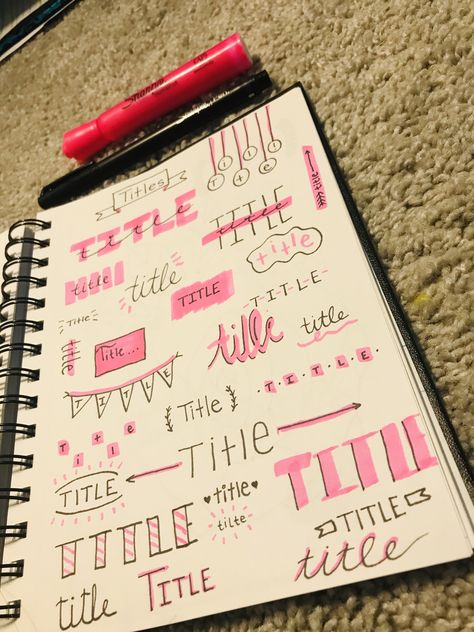 Sharpie
Titles
T i t l e
title
TITLE
title
TITLE
title
title
title
title
TITLE
T-I-T-L-E
Title
title
Title...
title
title
TITLE
Title
T.I.T.L.E.
T i t l e
Title
TITLE
TITLE
title
tilte
TITLE
TITLE
title
title
TITLE